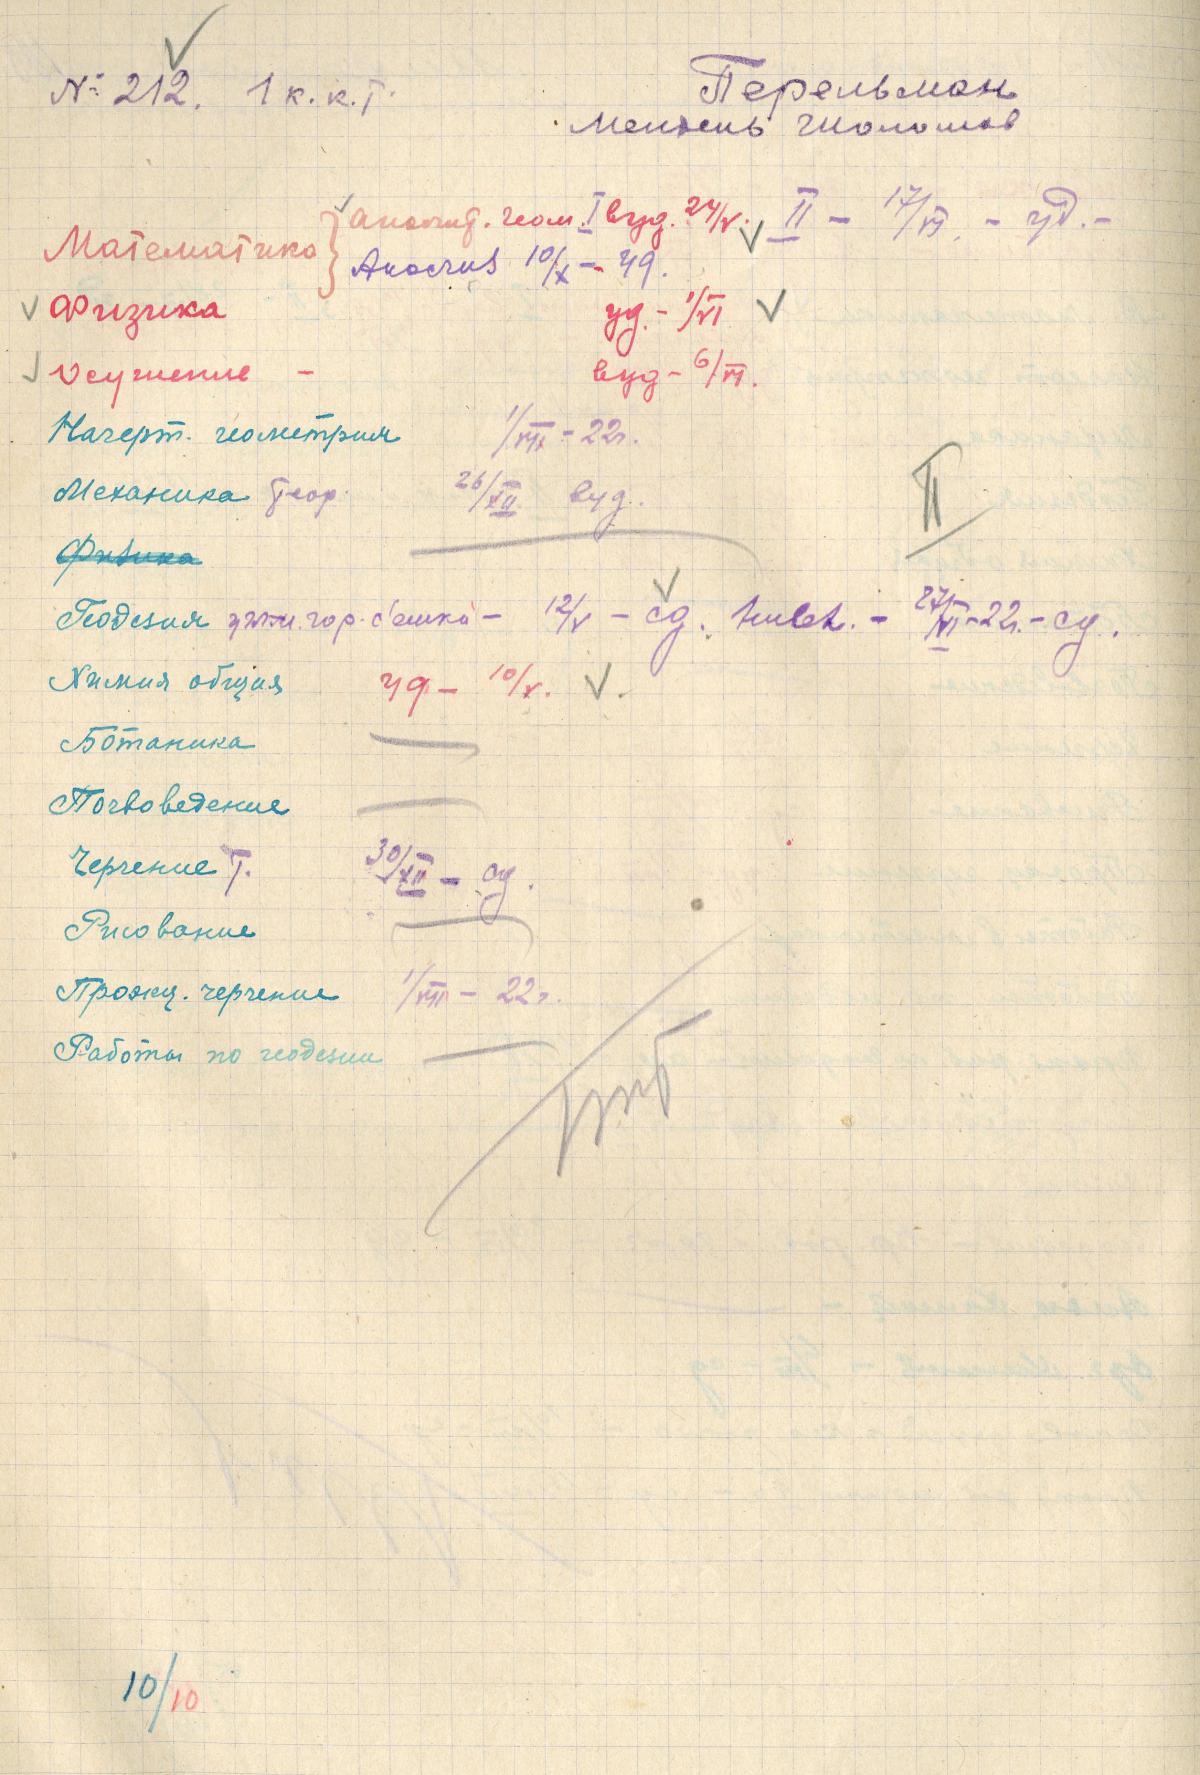 № 212. 1 к. к. Г.
Перельман
Математика
Аналит. геом. I вуд. 24/V. II – 17/VI. – уд. –
Анализ 10/X – уд.
Физика уд. – 1/VI
вуд – 6/VI.
Начерт. геометрия 1/VIII – 22г.
Механика Теор. 26/XII вуд.
Физика
Геодезия гор. с'емка – 12/V – сд. нивел. – 27/VI – 22г. – сд.
Химия общая уд – 10/V.
Ботаника
Почвоведение
Черчение Т. 30/XII – сд.
Рисование
Проэкц. черчение 1/VIII – 22г.
Работы по геодезии
II
10/10